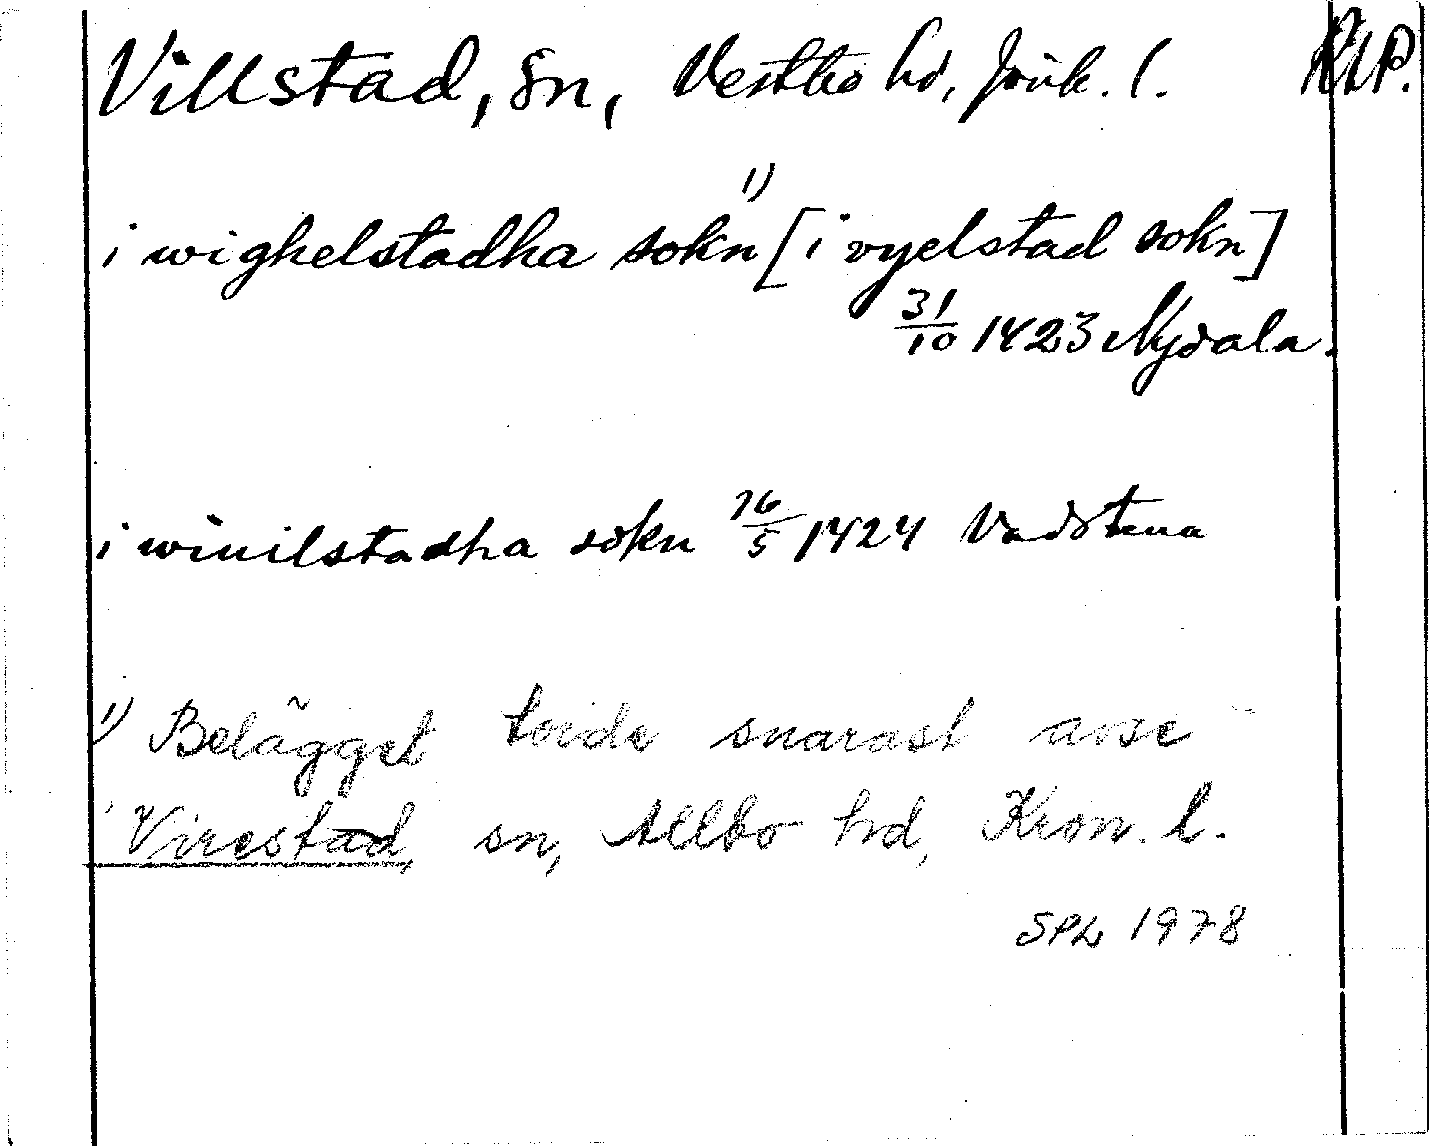 Villstad, sn, Västbo hd, Jönk. l. RAP.
i wighelstadha sokn 1) [i vyelstad sokn]
31/10 1423 Nydala.
i winilstadha sokn 16/5 1424 Vadstena
1) Belägget torde snarast avse
Virestad, sn, Allbo hd, Kron. l.
SPL 1978